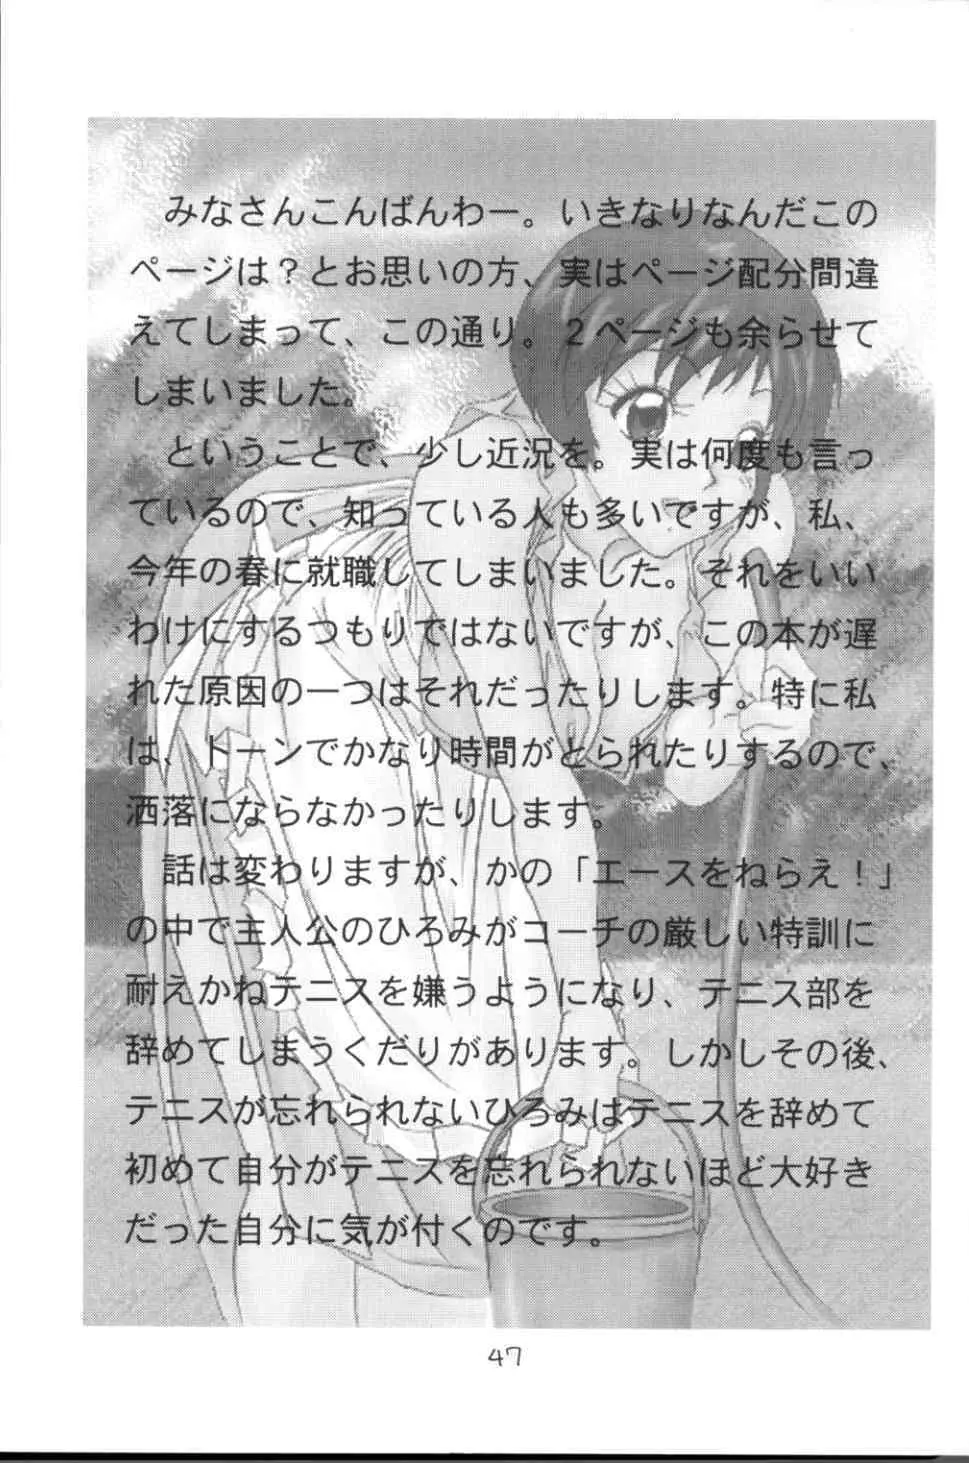 みなさんこんばんわー。いきなりなんだこの
ページは？とお思いの方、実はページ配分間違
えてしまって、この通り。２ページも余らせて
しまいました。
ということで、少し近況を。実は何度も言っ
ているので、知っている人も多いですが、私、
今年の春に就職してしまいました。それをいい
わけにするつもりではないですが、この本が遅
れた原因の一つはそれだったりします。特に私
は、トーンでかなり時間がとられたりするので、
洒落にならなかったりします。
話は変わりますが、かの「エースをねらえ！」
の中で主人公のひろみがコーチの厳しい特訓に
耐えかねテニスを嫌うようになり、テニス部を
辞めてしまうくだりがあります。しかしその後、
テニスが忘れられないひろみはテニスを辞めて
初めて自分がテニスを忘れられないほど大好き
だった自分に気が付くのです。
47